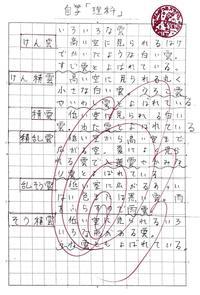 自学「理科」
いろいろな雲
けん雲 高い空に見られるはけ
でかいたような白い雲。
すじ雲とよばれている。
けん積雲 高い空に見られる丸く
小さな白い雲。いわし雲、
やひつじ雲とよばれている。
積雲 低い空に見られる白い
雲。わた雲とよばれている。
積乱雲 低い空から高い空まで
広がる雲。夏によく見ら
れる雲で入道雲やかみな
り雲とよばれている。
乱そう雲 低い空に広がるあつい
はい色または黒い雲。雨
をふらすので雨雲
そう積雲 低い空に見られるいろ
いろな形のある雲。
雲ともよばれている。